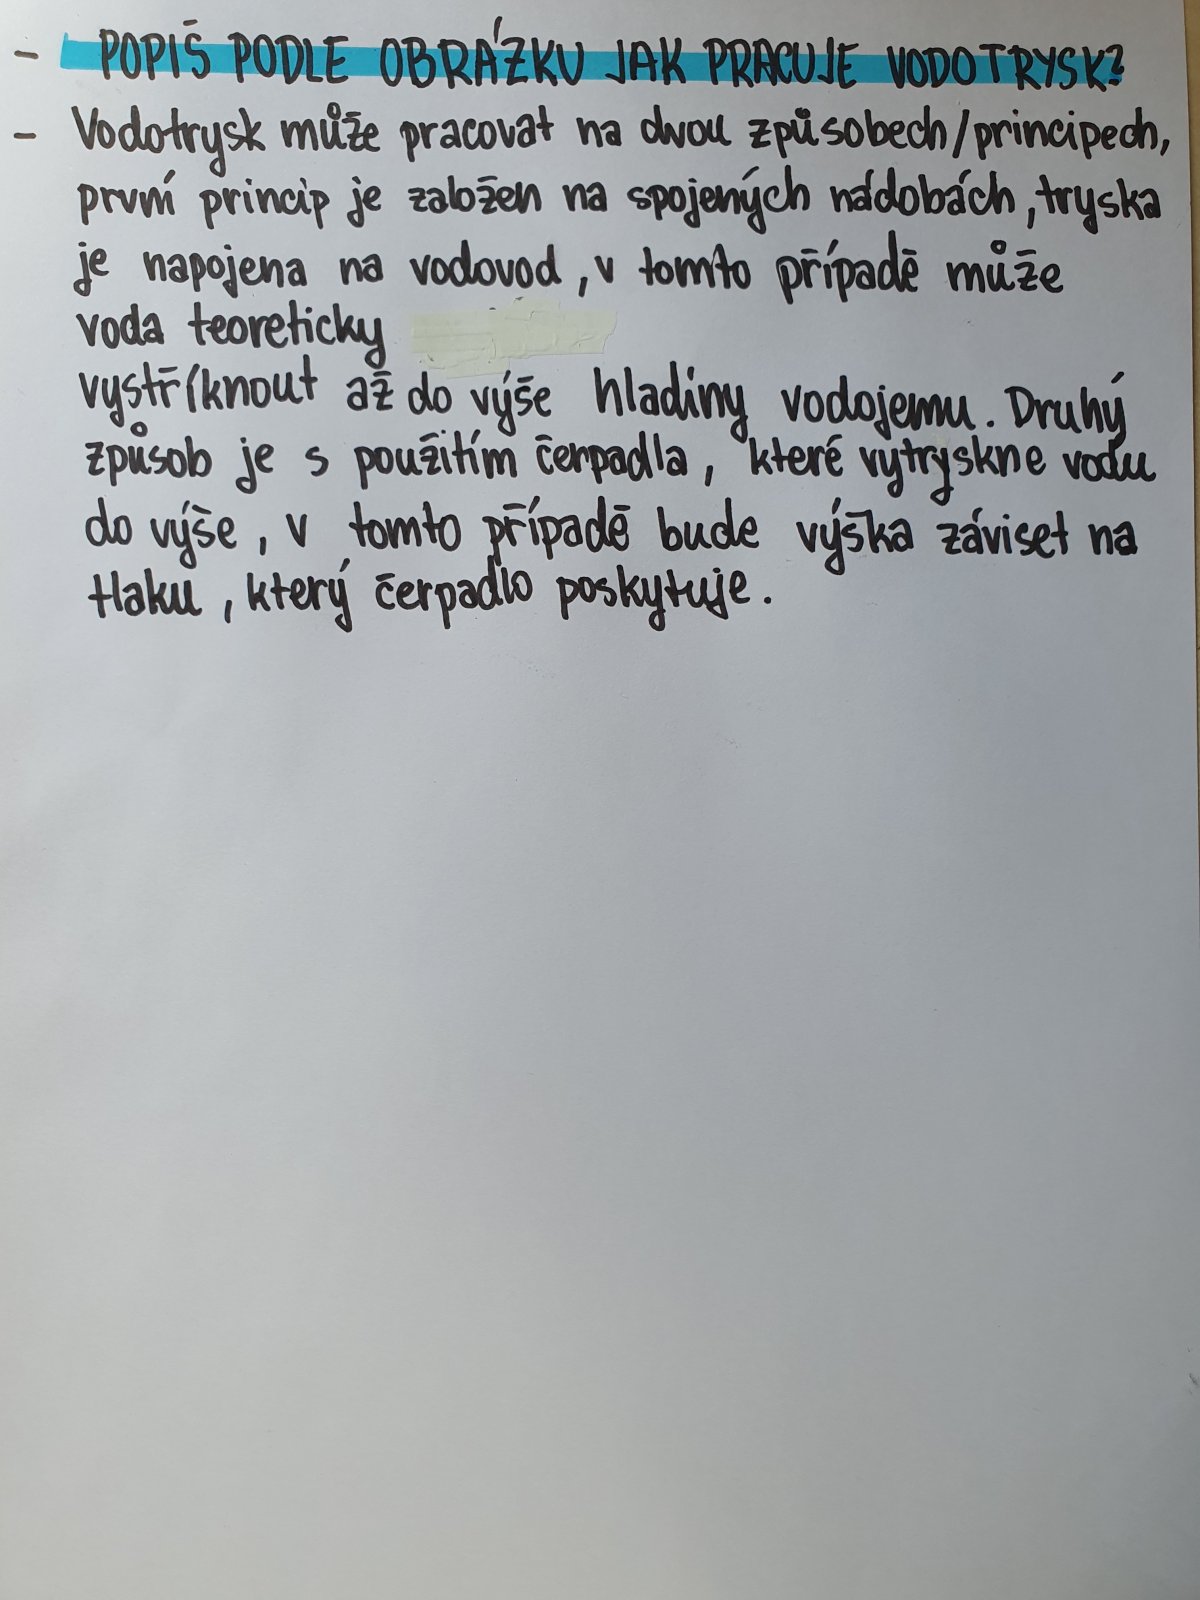 - POPIŠ PODLE OBRÁZKU JAK PRACUJE VODOTRYSK?
- Vodotrysk může pracovat na dvou způsobech/principech,
první princip je založen na spojených nádobách, tryska
je napojena na vodovod, v tomto případě může
voda teoreticky
vystříknout až do výše hladiny vodojemu. Druhý
způsob je s použitím čerpadla, které vytryskne vodu
do výše, v tomto případě bude výška záviset na
tlaku, který čerpadlo poskytuje.